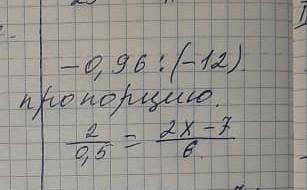 -0,96 : (-12)
пропорцию.
2/0,5 = 2x-7/6